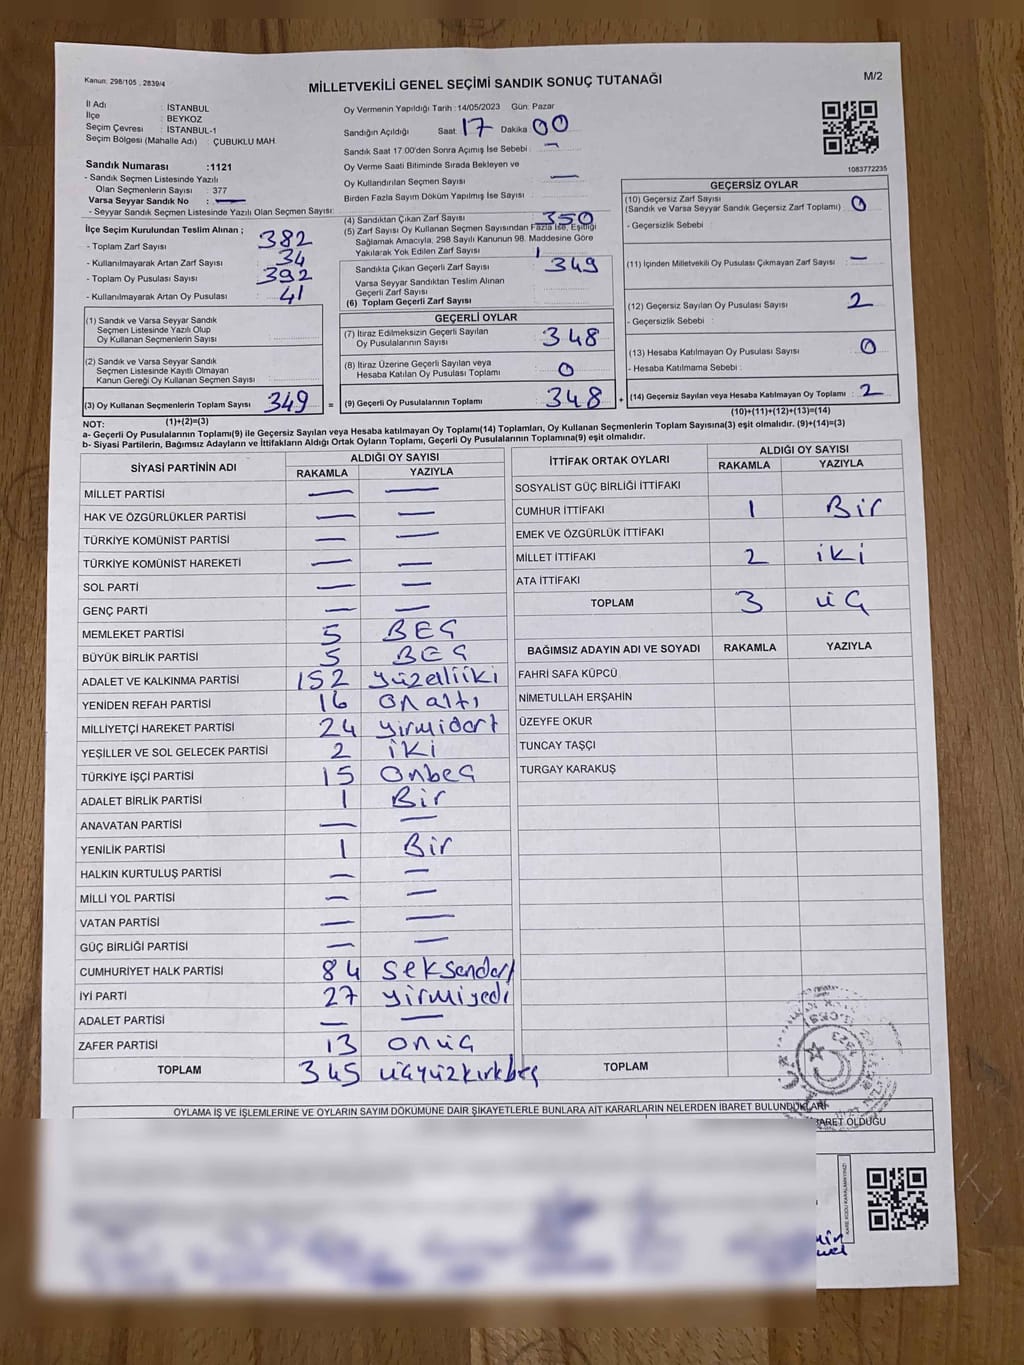 Kanun: 298/105 , 2839/4
MİLLETVEKİLİ GENEL SEÇİMİ SANDIK SONUÇ TUTANAĞI
M/2
İl Adı : İSTANBUL
İlçe : BEYKOZ
Seçim Çevresi : İSTANBUL-1
Seçim Bölgesi (Mahalle Adı) : ÇUBUKLU MAH.
Sandık Numarası :1121
- Sandık Seçmen Listesinde Yazılı
Olan Seçmenlerin Sayısı : 377
Varsa Seyyar Sandık No : —
- Seyyar Sandık Seçmen Listesinde Yazılı Olan Seçmen Sayısı:
İlçe Seçim Kurulundan Teslim Alınan ;
- Toplam Zarf Sayısı : 382
- Kullanılmayarak Artan Zarf Sayısı : 34
- Toplam Oy Pusulası Sayısı : 392
- Kullanılmayarak Artan Oy Pusulası : 41
(1) Sandık ve Varsa Seyyar Sandık
Seçmen Listesinde Yazılı Olup
Oy Kullanan Seçmenlerin Sayısı :
(2) Sandık ve Varsa Seyyar Sandık
Seçmen Listesinde Kayıtlı Olmayan
Kanun Gereği Oy Kullanan Seçmen Sayısı :
(3) Oy Kullanan Seçmenlerin Toplam Sayısı : 349 =
(1)+(2)=(3)
Oy Vermenin Yapıldığı Tarih : 14/05/2023 Gün: Pazar
Sandığın Açıldığı Saat: 17 Dakika : 00
Sandık Saat 17:00'den Sonra Açımış İse Sebebi : —
Oy Verme Saati Bitiminde Sırada Bekleyen ve
Oy Kullandırılan Seçmen Sayısı : —
Birden Fazla Sayım Döküm Yapılmış İse Sayısı :
(4) Sandıktan Çıkan Zarf Sayısı : 350
(5) Zarf Sayısı Oy Kullanan Seçmen Sayısından Fazla İse, Eşitliği
Sağlamak Amacıyla, 298 Sayılı Kanunun 98. Maddesine Göre
Yakılarak Yok Edilen Zarf Sayısı : 1
Sandıkta Çıkan Geçerli Zarf Sayısı : 349
Varsa Seyyar Sandıktan Teslim Alınan
Geçerli Zarf Sayısı :
(6) Toplam Geçerli Zarf Sayısı :
GEÇERLİ OYLAR
(7) İtiraz Edilmeksizin Geçerli Sayılan
Oy Pusulalarının Sayısı : 348
(8) İtiraz Üzerine Geçerli Sayılan veya
Hesaba Katılan Oy Pusulası Toplamı : 0
(9) Geçerli Oy Pusulalarının Toplamı : 348 +
1083772235
GEÇERSİZ OYLAR
(10) Geçersiz Zarf Sayısı
(Sandık ve Varsa Seyyar Sandık Geçersiz Zarf Toplamı) : 0
- Geçersizlik Sebebi :
(11) İçinden Milletvekili Oy Pusulası Çıkmayan Zarf Sayısı : —
(12) Geçersiz Sayılan Oy Pusulası Sayısı : 2
- Geçersizlik Sebebi :
(13) Hesaba Katılmayan Oy Pusulası Sayısı : 0
- Hesaba Katılmama Sebebi :
(14) Geçersiz Sayılan veya Hesaba Katılmayan Oy Toplamı : 2
(10)+(11)+(12)+(13)=(14)
NOT:
a- Geçerli Oy Pusulalarının Toplamı(9) ile Geçersiz Sayılan veya Hesaba Katılmayan Oy Toplamı(14) Toplamları, Oy Kullanan Seçmenlerin Toplam Sayısına(3) eşit olmalıdır. (9)+(14)=(3)
b- Siyasi Partilerin, Bağımsız Adayların ve İttifakların Aldığı Ortak Oyların Toplamı, Geçerli Oy Pusulalarının Toplamına(9) eşit olmalıdır.
SİYASİ PARTİNİN ADI ALDIĞI OY SAYISI
RAKAMLA YAZIYLA
MİLLET PARTİSİ — —
HAK VE ÖZGÜRLÜKLER PARTİSİ — —
TÜRKİYE KOMÜNİST PARTİSİ — —
TÜRKİYE KOMÜNİST HAREKETİ — —
SOL PARTİ — —
GENÇ PARTİ — —
MEMLEKET PARTİSİ 5 BEŞ
BÜYÜK BİRLİK PARTİSİ 5 BEŞ
ADALET VE KALKINMA PARTİSİ 152 yüzelliiki
YENİDEN REFAH PARTİSİ 16 onaltı
MİLLİYETÇİ HAREKET PARTİSİ 24 yirmidört
YEŞİLLER VE SOL GELECEK PARTİSİ 2 iki
TÜRKİYE İŞÇİ PARTİSİ 15 onbeş
ADALET BİRLİK PARTİSİ 1 Bir
ANAVATAN PARTİSİ — —
YENİLİK PARTİSİ 1 Bir
HALKIN KURTULUŞ PARTİSİ — —
MİLLİ YOL PARTİSİ — —
VATAN PARTİSİ — —
GÜÇ BİRLİĞİ PARTİSİ — —
CUMHURİYET HALK PARTİSİ 84 seksendört
İYİ PARTİ 27 yirmiyedi
ADALET PARTİSİ — —
ZAFER PARTİSİ 13 onüç
TOPLAM 345 üçyüzkırkbeş
İTTİFAK ORTAK OYLARI ALDIĞI OY SAYISI
RAKAMLA YAZIYLA
SOSYALİST GÜÇ BİRLİĞİ İTTİFAKI
CUMHUR İTTİFAKI 1 Bir
EMEK VE ÖZGÜRLÜK İTTİFAKI
MİLLET İTTİFAKI 2 iki
ATA İTTİFAKI
TOPLAM 3 üç
BAĞIMSIZ ADAYIN ADI VE SOYADI RAKAMLA YAZIYLA
FAHRİ SAFA KÜPCÜ
NİMETULLAH ERŞAHİN
ÜZEYFE OKUR
TUNCAY TAŞÇI
TURGAY KARAKUŞ
TOPLAM
OYLAMA İŞ VE İŞLEMLERİNE VE OYLARIN SAYIM DÖKÜMÜNE DAİR ŞİKAYETLERLE BUNLARA AİT KARARLARIN NELERDEN İBARET BULUNDUKLARI
BARET OLDUĞU